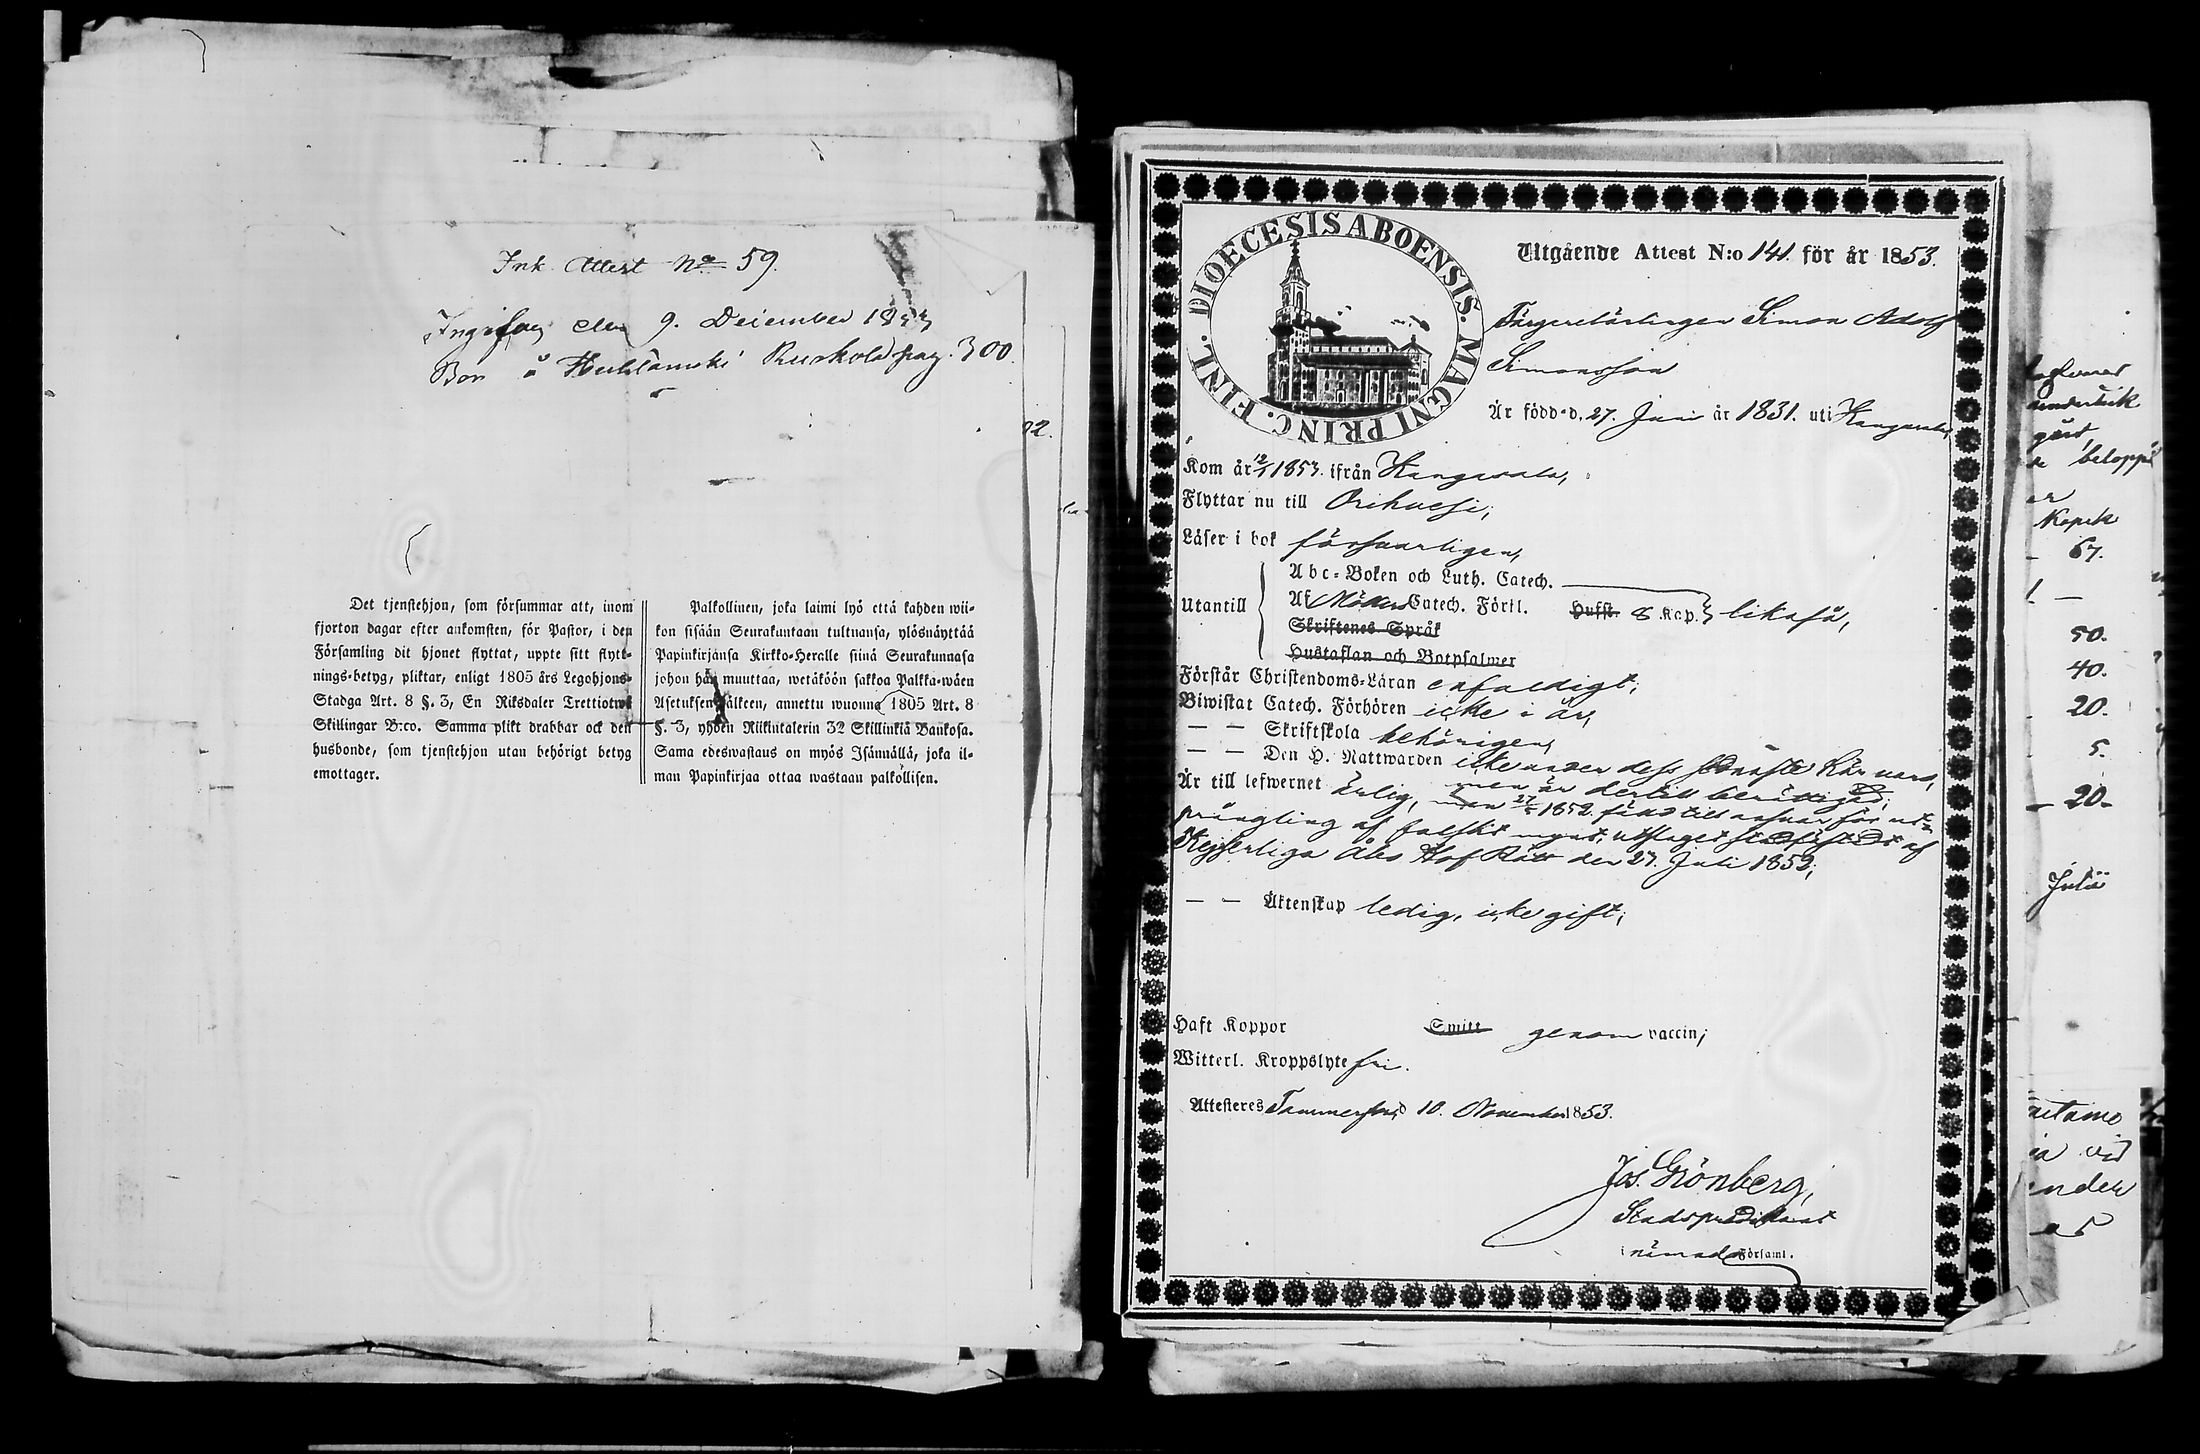 Ink. Attest No 59.
Ingifven den 9. December 1853
Bor å Ruskola pag. 300.
Det tjenstehjon, som försummar att, inom
fjorton dagar efter ankomsten, för Pastor, i den
Församling dit hjonet flyttat, uppte sitt flytt-
nings-betyg, pliktar, enligt 1805 års Legohjons-
Stadga Art. 8 §. 3, En Riksdaler Trettiotwå
Skillingar B:co. Samma plikt drabbar ock den
husbonde, som tjenstehjon utan behörigt betyg
emottager.
Palkollinen, joka laimi lyö että kahden wii-
kon sisään Seurakuntaan tultuansa, ylösnäyttää
Papinkirjansa Kirkko-Heralle siinä Seurakunnasa
johon hän muuttaa, wetäköön sakkoa Palkka-wäen
Asetuksen jälkeen, annettu wuonna 1805 Art. 8
§. 3, yhden Riikintalerin 32 Skillinkiä Bankosa.
Sama edeswastaus on myös Isännällä, joka il-
man Papinkirjaa ottaa wastaan palkollisen.
22.
DIOECESIS ABOENSIS. MAGNI PRINC. FINL.
Utgående Attest N:o 141. för år 1853.
Färgerilärlingen Simon Adolf
Simonsson
Är född d. 27. Juni år 1831. uti Kangasala,
Kom år 1853. ifrån Kangasala,
Flyttar nu till Orihvesi,
Läser i bok försvarligen,
Abc-Boken och Luth. Catech.
Utantill Af Möllers Catech. Förkl. Hufst. 8 Kap. likaså,
Skriftenes Språk
Hustaflan och Botpsalmer
Förstår Christendoms-Läran enfaldigt;
Biwistat Catech. Förhören icke i år,
— — Skriftskola behörigen,
— — Den H. Nattwarden icke under dess sednaste här varo,
men är dertill berättigad;
Är till lefwernet ärlig, men 27/5 1852 fäld till ansvar för ut-
prångling af falskt mynt, utslaget stadfästadt af
Kejserliga Åbo Hof Rätt den 27. Juli 1852;
— — Äktenskap ledig, icke gift;
Haft Koppor Smitt genom vaccin;
Witterl. Kroppslyte fri.
Attesteres Tammerfors d 10. November 1853.
Jos. Grönberg,
Stadspredikant
i nämnda Församl.
beloppe
Kopek
67.
1 —
50.
40.
20.
5.
20.
vid